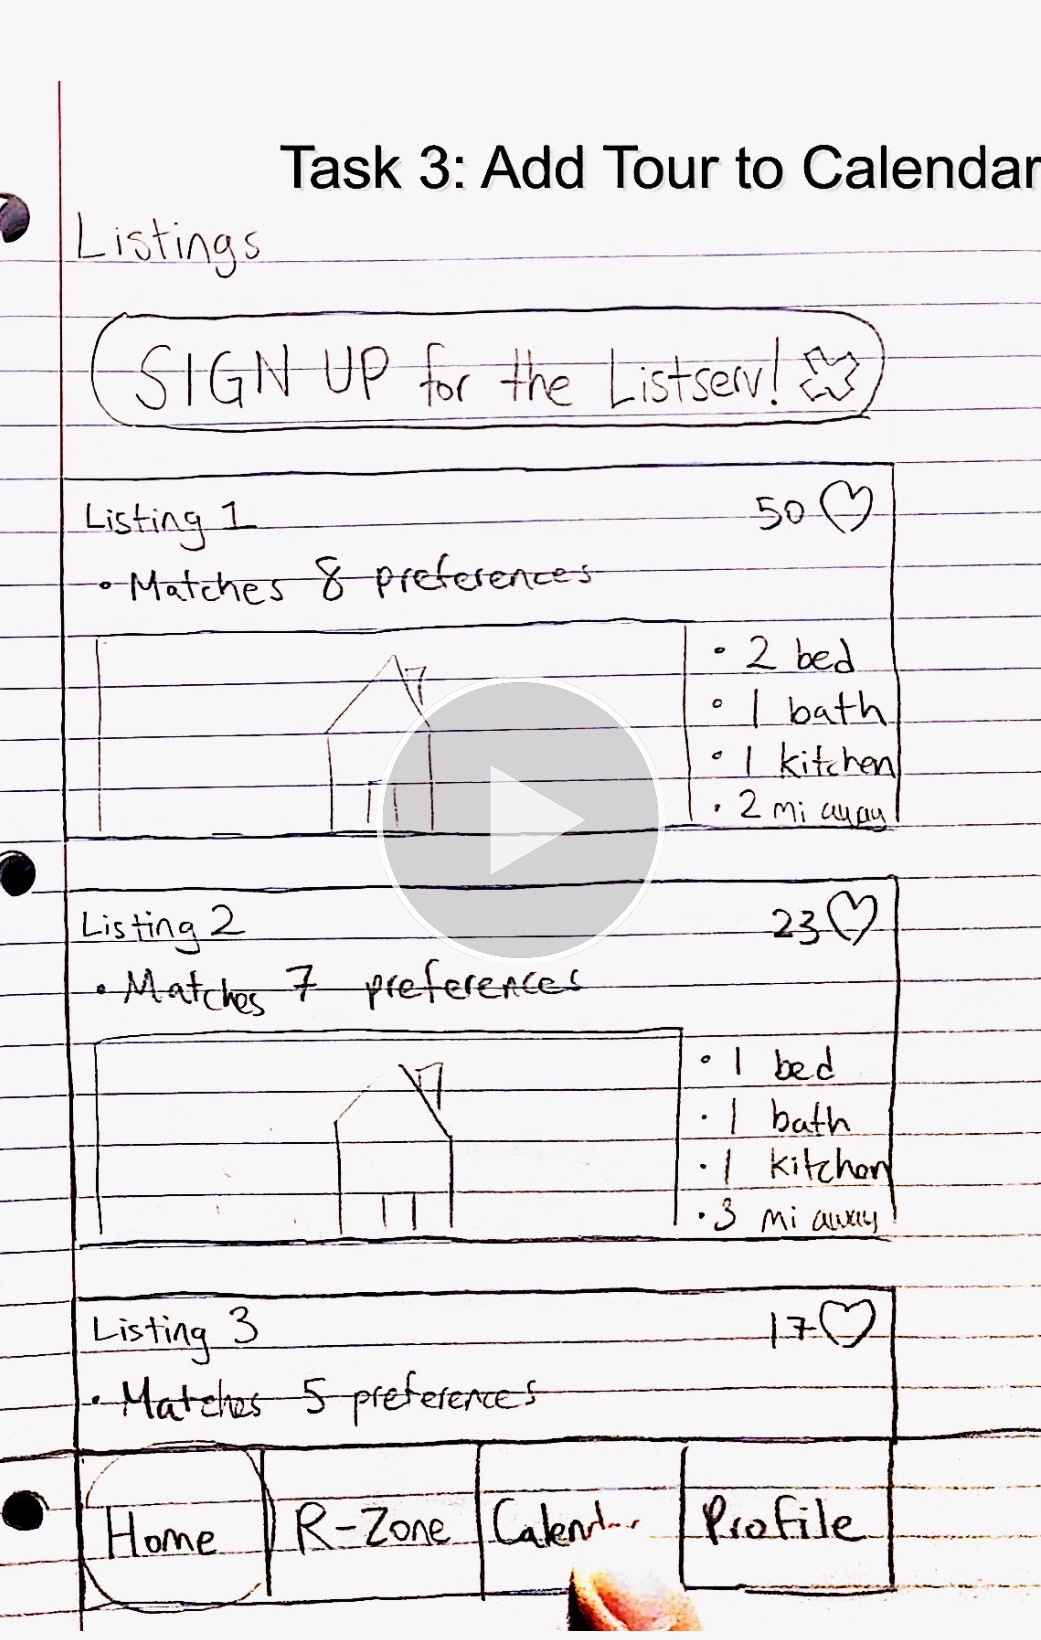 Task 3: Add Tour to Calendar
Listings
SIGN UP for the Listserv!
Listing 1 50
• Matches 8 preferences
• 2 bed
• 1 bath
• 1 kitchen
• 2 mi away
Listing 2 23
• Matches 7 preferences
• 1 bed
• 1 bath
• 1 kitchen
• 3 mi away
Listing 3 17
• Matches 5 preferences
Home R-Zone Calendar Profile